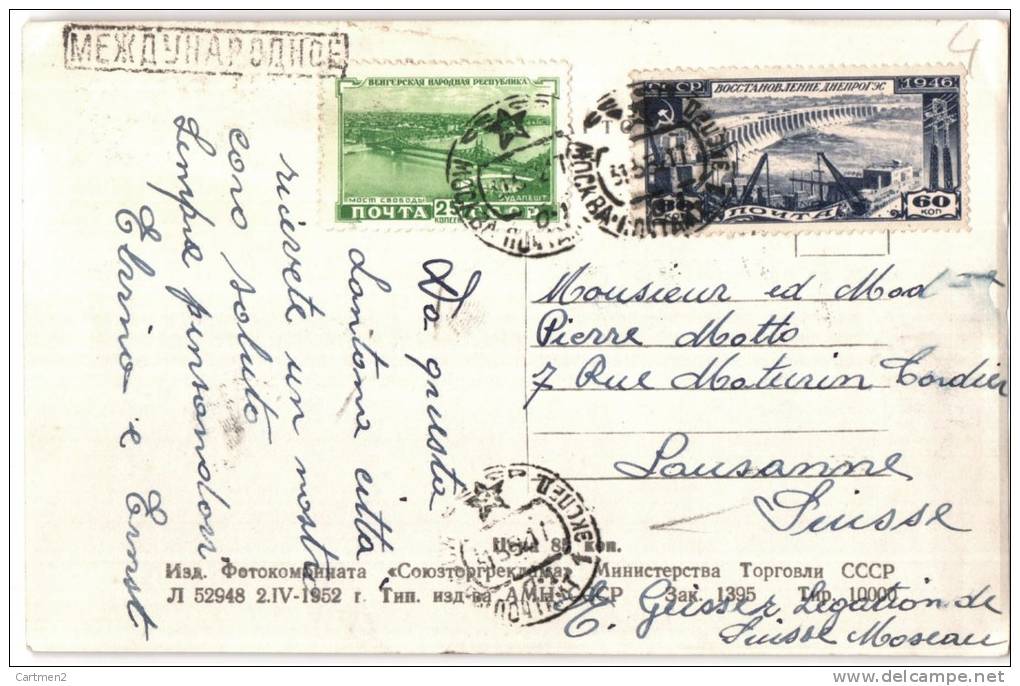 МЕЖДУНАРОДНОЕ
4
ВЕНГЕРСКАЯ НАРОДНАЯ РЕСПУБЛИКА
МОСТ СВОБОДЫ
БУДАПЕШТ
ПОЧТА 25
КОПЕЕК
СССР ВОССТАНОВЛЕНИЕ ДНЕПРОГЭС 1946
ПОЧТА 60
КОП
МОСКВА ПОЧТАМТ
МОСКВА ПОЧТАМТ
Da questa
lontana città
ricevete un nostro
caro saluto
Sempre pensandovi
e Ernst
Monsieur ed Mad
Pierre Motto
7 Rue Maturin Cordier
Lausanne
Suisse
ЭКСПЕД
Цена 85 коп.
Изд. Фотокомбината «Союзторгреклама» Министерства Торговли СССР
Л 52948 2.IV-1952 г. Тип. изд-ва АМН СССР Зак. 1395 Тир. 10000
E. Geisser Legation de
Suisse Moscau
Cartmen2
delcampe.net